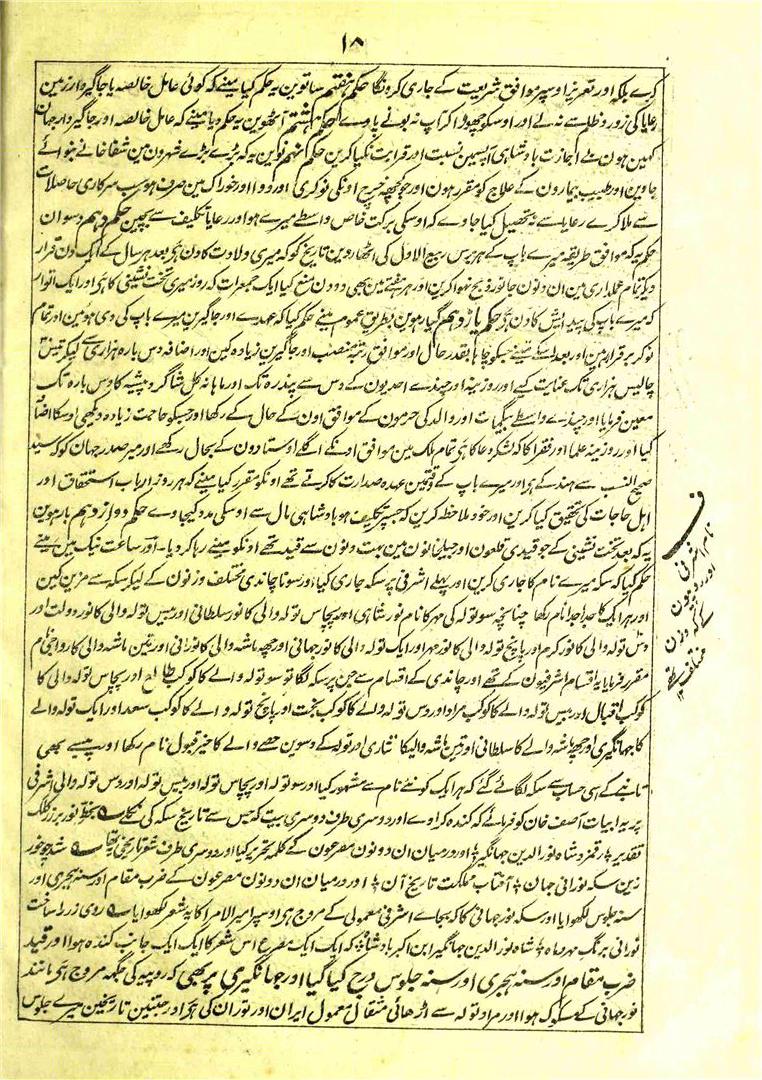 ١٨
کرے بلکہ اور تعزیر اوسپر موافق شریعت کے جاری کرونگا حکم ہفتم ساتوین یہ حکم کیا مینے کہ کوئی عامل خالصہ یا جاگیردار زمین
رعایا کی زور و ظلم سے نہ لے اور اوسکو چھوڑ اکر آپ نہ بونے پاوے حکم ہشتم آٹھوین یہ حکم دیا مینے کہ عامل خالصہ اور جاگیردار جہان
کہین ہون بے اجازت بادشاہی آپسمین نسبت اور قرابت نکیا کرین حکم نہم نوین یہ کہ بڑے بڑے شہرون مین شفا خانے بنوائے
جاوین اور طبیب بیمارون کے علاج کو مقرر ہون اور جو کچھہ خرچ اونکی نوکری اور دوا اور خوراک مین صرف ہو سب سرکاری حاصلات
سے ملا کرے رعایا سے نہ تحصیل کیا جاوے کہ اوسکی برکت خاص واسطے میرے ہو اور رعایا تکلیف سے بچین حکم دہم دسوان
حکم یہ کہ موافق طریقہ میرے باپ کے ہر برس ربیع الاول کی اٹھاروین تاریخ کو کہ میری ولادت کا دن ہو بعد ہر سال کے ایک دن قرار
دیکر تمام عملداری مین ان دنون جانور ذبح نہوا کرین اور ہر ہفتے مین بھی دو دن منع کیا ایک جمعرات کہ روز میری تخت نشینی کا ہو اور ایک اتوار
کہ میرے باپ کی پیدایش کا دن ہو حکم یازدہم گیارہوین بطریق عموم مینے حکم کیا کہ عہدے اور جاگیرین میرے باپ کی دی ہوئین اور تمام
نوکر برقرار رہین اور بعد اسکے مینے جسکو چاہا بقدر حال اور موافق رتبہ منصب اور جاگیرین زیادہ کین اور اضافہ دس بارہ ہزاری سے لیکر تیس
چالیس ہزاری تک عنایت کیے اور روزینہ اور چندے احدیون کے دس سے پندرہ تک اور ماہانہ کل شاگرد پیشہ کا دس بارہ تک
معین فرمایا اور چندے واسطے بیگمات اور والد کی حرمون کے موافق اون کے حال کے رکھا اور جسکو حاجت زیادہ دیکھی اوسکا اضافہ
کیا اور روزینہ علما اور فقرا کا کہ لشکر دعا کا ہی تمام ملک مین موافق اونکے اگلے اوستادون کے بحال رکھے اور میر صدر جہان کو کہ سید
صحیح النسب سے ہند کے ہو اور میرے باپ کے وقت مین عہدہ صدارت کا کرتے تھے اونکو مقرر کیا مینے کہ ہر روز ارباب استحقاق اور
اہل حاجات کی تحقیق کیا کرین اور خود ملاحظہ کرین کہ جسپر تکلیف ہو بادشاہی مال سے اوسکی مدد کیجاوے حکم دوازدہم بارہوین
یہ کہ بعد تخت نشینی کے جو قیدی قلعون اور جیلخانون مین بہت دنون سے قید تھے اونکو مینے رہا کر دیا - اور ساعت نیک مین مینے
حکم کیا کہ سکہ میرے نام کا جاری کرین اور پہلے اشرفی پر سکہ جاری کیا اور سونا چاندی مختلف وزنون کے لیکر سکہ سے مزین کین
اور ہر ایک کا جدا جدا نام رکھا چنانچہ سو تولہ کی مہر کا نام نور شاہی اور پچاس تولہ والی کا نور سلطانی اور بیس تولہ والی کا نور دولت اور
دس تولہ والی کا نور کرم اور پانچ تولہ والی کا نور مہر اور ایک تولہ والی کا نور جہانی اور چھہ ماشہ والی کا نورانی اور تین ماشہ والی کا رواجی نام
مقرر فرمایا یہ اقسام اشرفیون کے تھے اور چاندی کے اقسام سے جن پر سکہ لگا تو سو تولہ والے کا کوکب طالع اور پچاس تولہ والی کا
کوکب اقبال اور بیس تولہ والے کا کوکب مراد اور دس تولہ والے کا کوکب بخت اور پانچ تولہ والے کا کوکب سعد اور ایک تولہ والے
کا جہانگیری اور چھہ ماشہ والے کا سلطانی اور تین ماشہ والیکا نثاری اور تولہ کے دسوین حصے والے کا خیر قبول نام رکھا اور پیسے بھی
تانبے کے اسی حساب سے سکہ لگائے گئے کہ ہر ایک کو نئے نام سے مشہور کیا اور سو تولہ اور پچاس تولہ اور بیس تولہ اور دس تولہ والی اشرفی
پر یہ ابیات آصف خان کو فرمائے کہ کندہ کراوے اور دوسری طرف دوسری بیت کہ جس سے تاریخ سکہ کی نکلے بخط نور بر زر کلک
تقدیر رقم زد شاہ نور الدین جہانگیر اور درمیان ان دونون مصرعون کے کلمہ تحریر کیا اور دوسری طرف شعر تاریخی یہ تھا شد چو خور
زین سکہ نورانی جہان آفتاب مملکت تاریخ آن اور درمیان ان دونون مصرعون کے ضرب مقام اور سنہ ہجری اور
سنہ جلوس لکھوایا اور سکہ نور جہانی کا کہ بجاے اشرفی معمولی کے مروج ہی اوسپر امیر الامرا کا یہ شعر لکھوایا روی زر را ساخت
نورانی برنگ مہر و ماہ شاہ نور الدین جہانگیر ابن اکبر بادشاہ کہ ایک ایک مصرع اس شعر کا ایک ایک جانب کندہ ہوا اور قید
ضرب مقام اور سنہ ہجری اور سنہ جلوس درج کیا گیا اور جہانگیری پر بھی کہ روپیہ کی جگہہ مروج ہی مانند
نور جہانی کے سکوک ہوا اور مراد تولہ سے اڑھائی مثقال معمول ایران اور توران کی ہو اور جتنین تاریخین میرے جلوس
ف
نام اشرفی
اور روپیون
کے کہ وزن
مختلف تھے ١٢